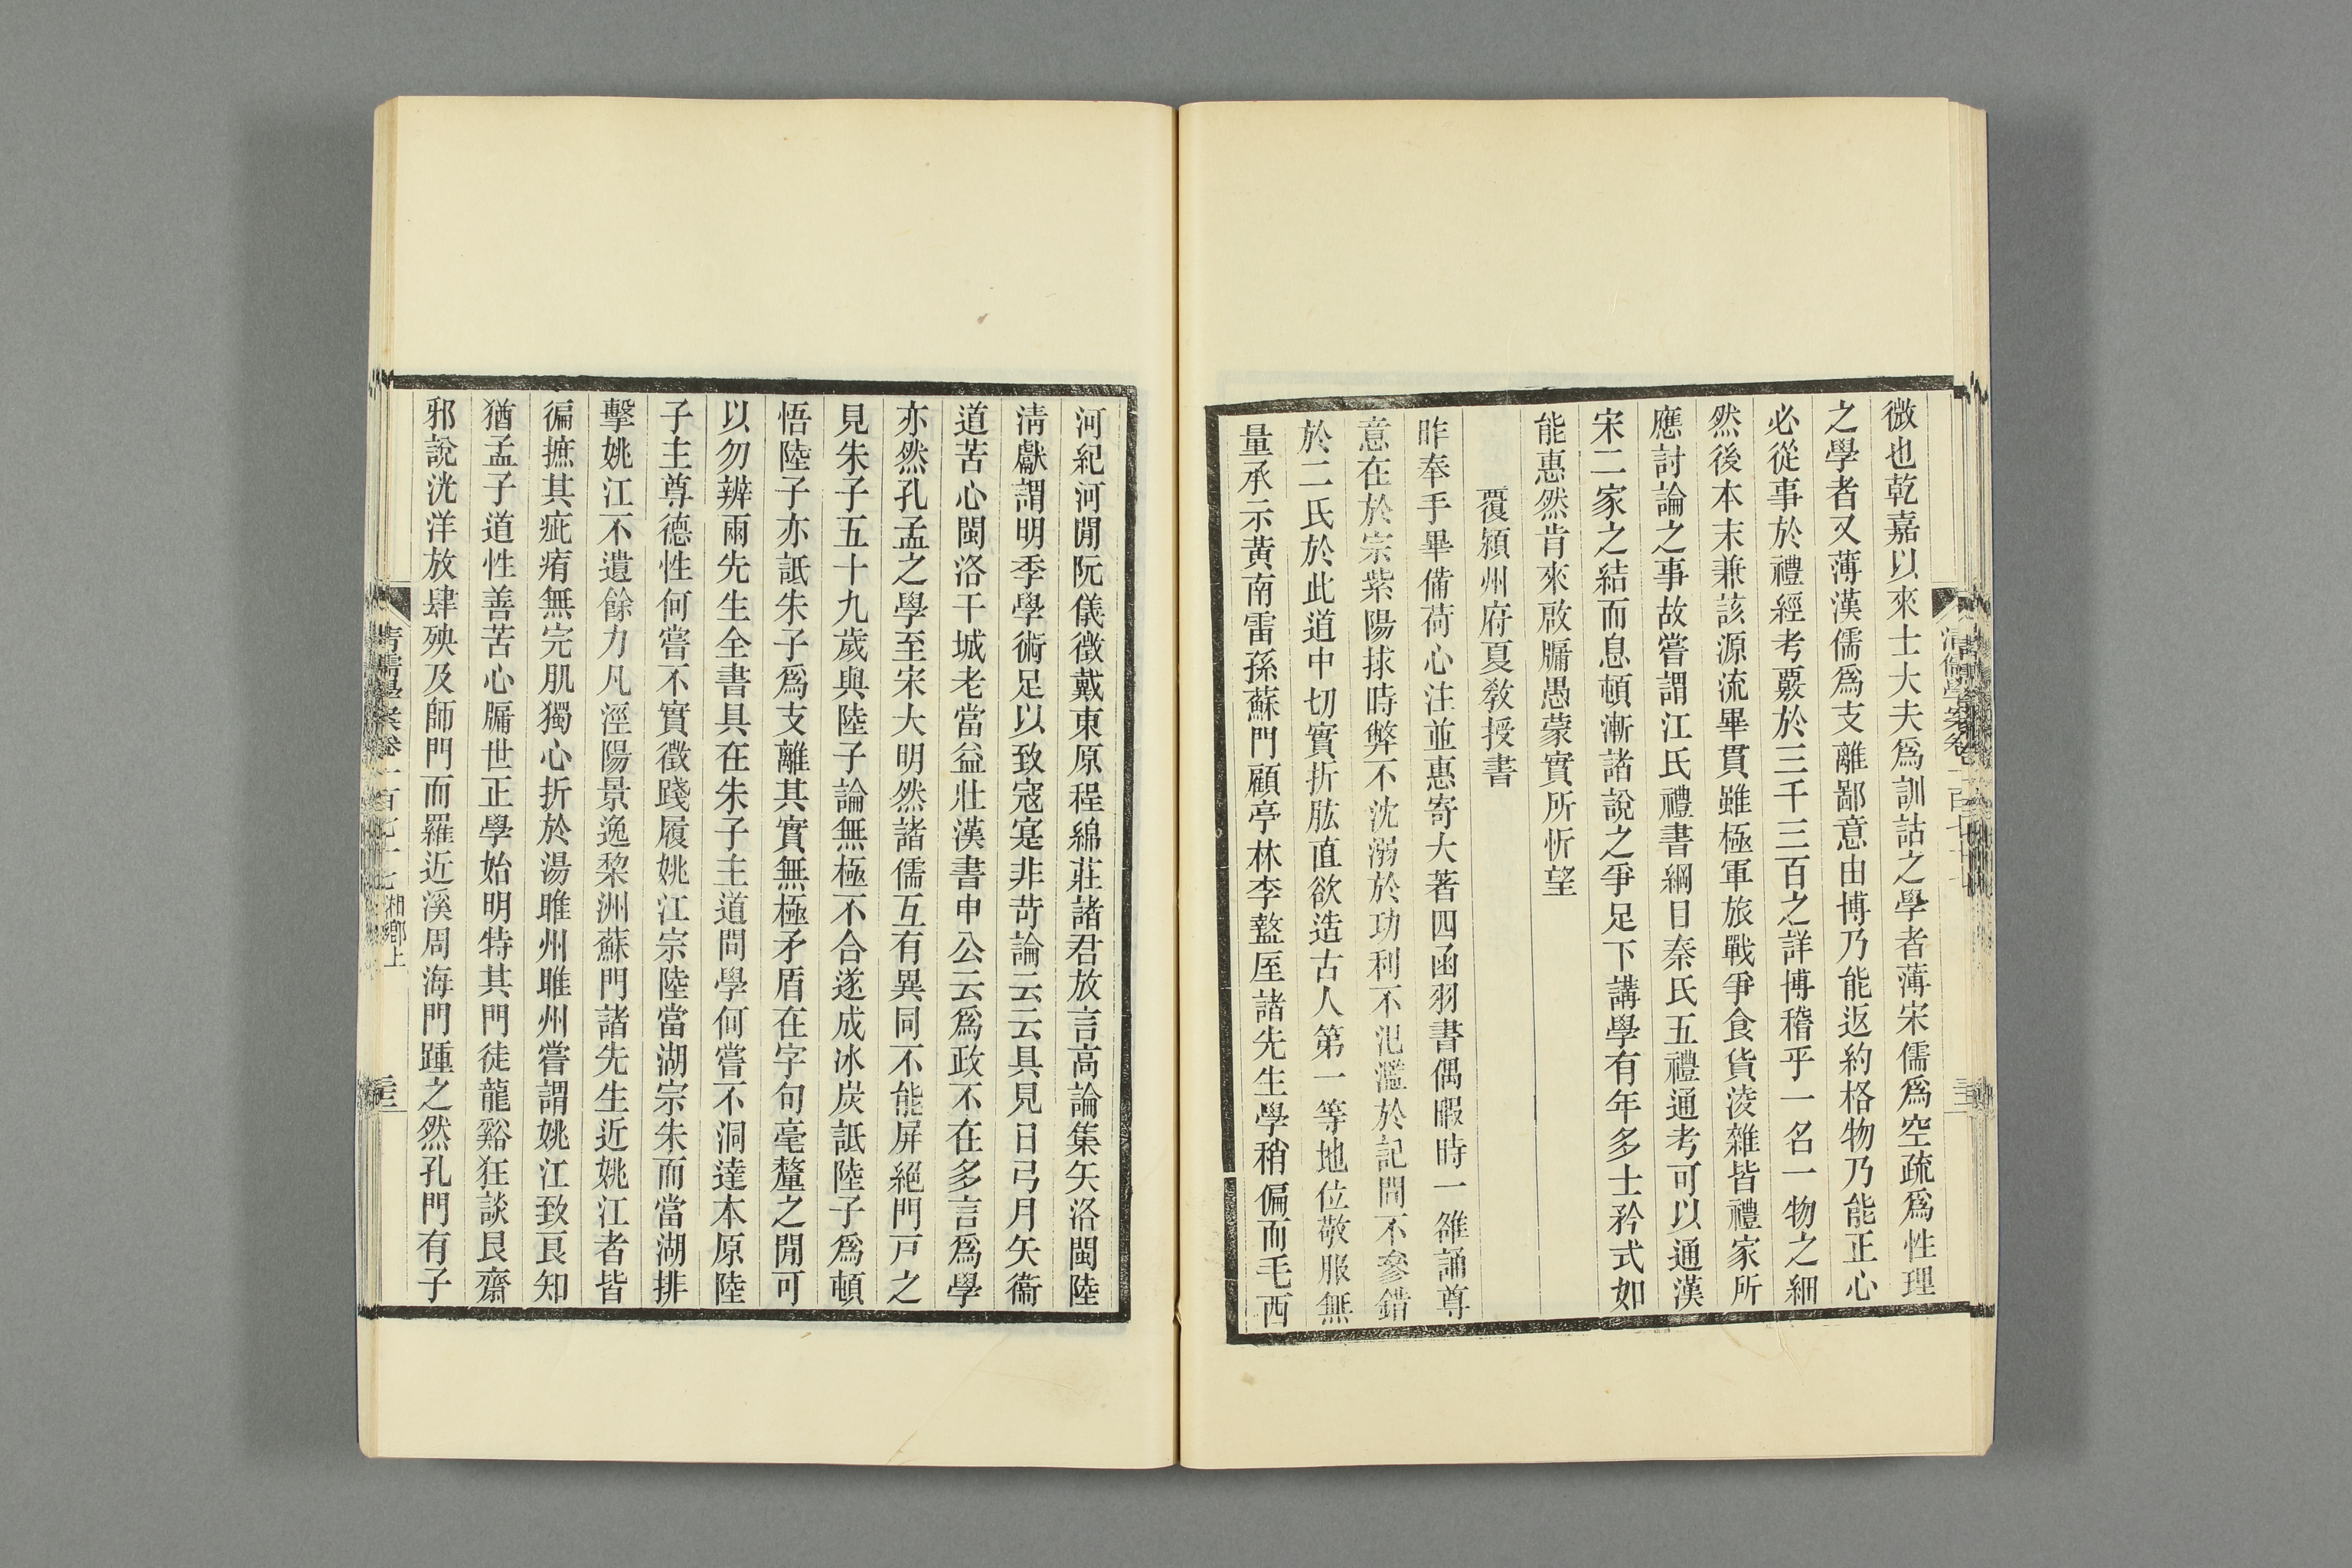 微也乾嘉以來士大夫爲訓詁之學者薄宋儒爲空疏爲性理
之學者又薄漢儒爲支離鄙意由博乃能返約格物乃能正心
必從事於禮經考覈於三千三百之詳博稽乎一名一物之細
然後本末兼該源流畢貫雖極軍旅戰爭食貨淩雜皆禮家所
應討論之事故嘗謂江氏禮書綱目秦氏五禮通考可以通漢
宋二家之結而息頓漸諸說之爭足下講學有年多士矜式如
能惠然肯來啟牖愚蒙實所忻望
覆潁州府夏敎授書
昨奉手畢備荷心注並惠寄大著四函羽書偶暇時一雒誦尊
意在於宗紫陽捄時弊不沈溺於功利不氾濫於記問不參錯
於二氏於此道中切實折肱直欲造古人第一等地位敬服無
量承示黃南雷孫蘇門顧亭林李盩厔諸先生學稍偏而毛西
河紀河閒阮儀徵戴東原程綿莊諸君放言高論集矢洛閩陸
淸獻謂明季學術足以致寇寔非苛論云云具見日弓月矢衞
道苦心閩洛干城老當益壯漢書申公云爲政不在多言爲學
亦然孔孟之學至宋大明然諸儒互有異同不能屏絕門戸之
見朱子五十九歲與陸子論無極不合遂成冰炭詆陸子爲頓
悟陸子亦詆朱子爲支離其實無極矛盾在字句毫釐之閒可
以勿辨兩先生全書具在朱子主道問學何嘗不洞達本原陸
子主尊德性何嘗不實徵踐履姚江宗陸當湖宗朱而當湖排
擊姚江不遺餘力凡涇陽景逸黎洲蘇門諸先生近姚江者皆
徧摭其疵痏無完肌獨心折於湯睢州睢州嘗謂姚江致良知
猶孟子道性善苦心牖世正學始明特其門徒龍谿狂談艮齋
邪說洸洋放肆殃及師門而羅近溪周海門踵之然孔門有子
淸儒學案卷一百七十七 湘鄕上